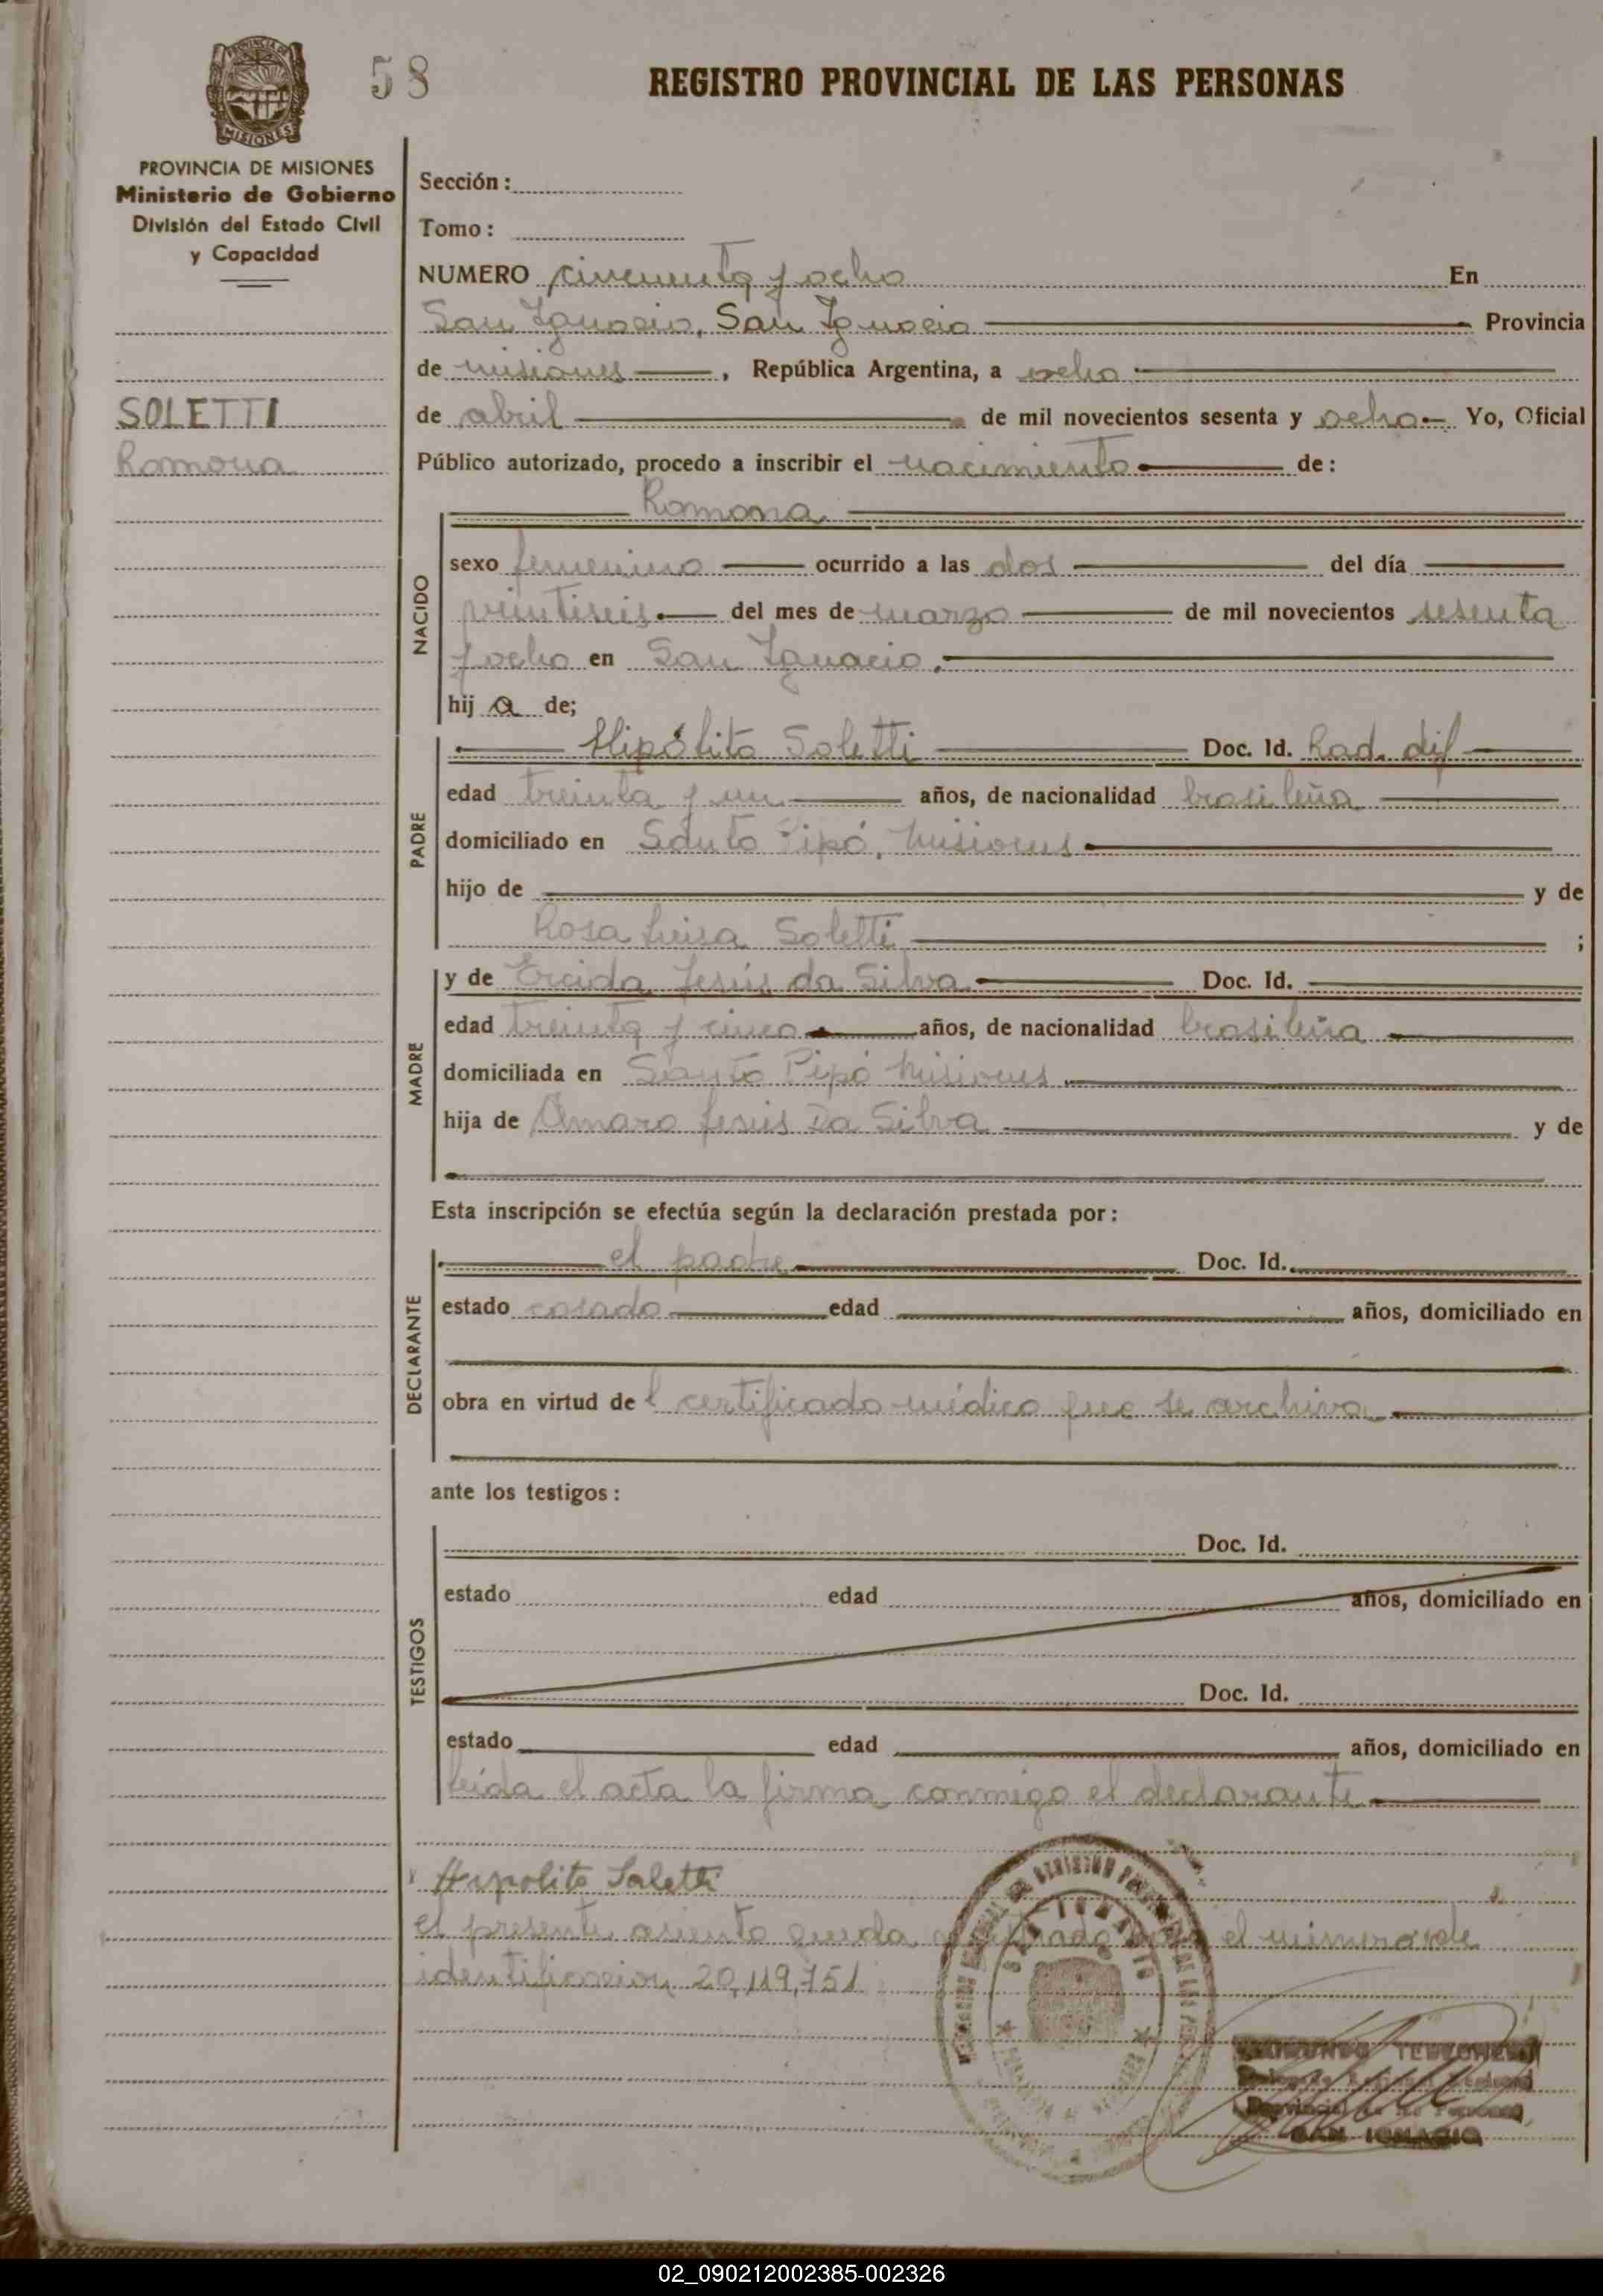 PROVINCIA DE
MISIONES
58
REGISTRO PROVINCIAL DE LAS PERSONAS
PROVINCIA DE MISIONES
Ministerio de Gobierno
División del Estado Civil
y Capacidad
SOLETTI
Ramona
Sección:
Tomo:
NUMERO cincuenta y ocho En
San Ignacio, San Ignacio Provincia
de misiones, República Argentina, a ocho
de abril de mil novecientos sesenta y ocho Yo, Oficial
Público autorizado, procedo a inscribir el nacimiento de:
Ramona
NACIDO
sexo femenino ocurrido a las dos del día
veintiseis del mes de marzo de mil novecientos sesenta
y ocho en San Ignacio.
hij a de;
PADRE
Hipólito Soletti Doc. Id. Rad. dif
edad treinta y un años, de nacionalidad brasileña
domiciliado en Santo Pipó, Misiones
hijo de y de
Rosa Luisa Soletti ;
MADRE
y de Ercida Jesús da Silva Doc. Id.
edad treinta y cinco años, de nacionalidad brasileña
domiciliada en Santo Pipó Misiones
hija de Amaro Jesús Da Silva y de
Esta inscripción se efectúa según la declaración prestada por:
DECLARANTE
el padre Doc. Id.
estado casado edad años, domiciliado en
obra en virtud de l certificado médico que se archiva
ante los testigos:
TESTIGOS
Doc. Id.
estado edad años, domiciliado en
Doc. Id.
estado edad años, domiciliado en
leída el acta la firma conmigo el declarante
Hipolito Saletti
el presente asiento queda el número de
identificacion 20,119,751
SAN IGNACIO
SAN IGNACIO
02_090212002385-002326